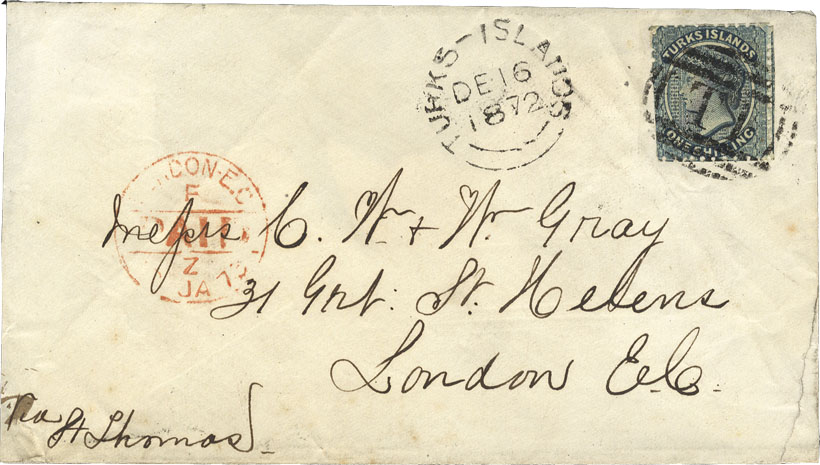 TURKS-ISLANDS
DE 16
1872
TURKS ISLANDS
ONE SHILLING
LONDON-E.C
PAID
Z
JA 73
Messrs C. W. & W. Gray
31 Grt. St. Helens
London E.C.
Via
St Thomas